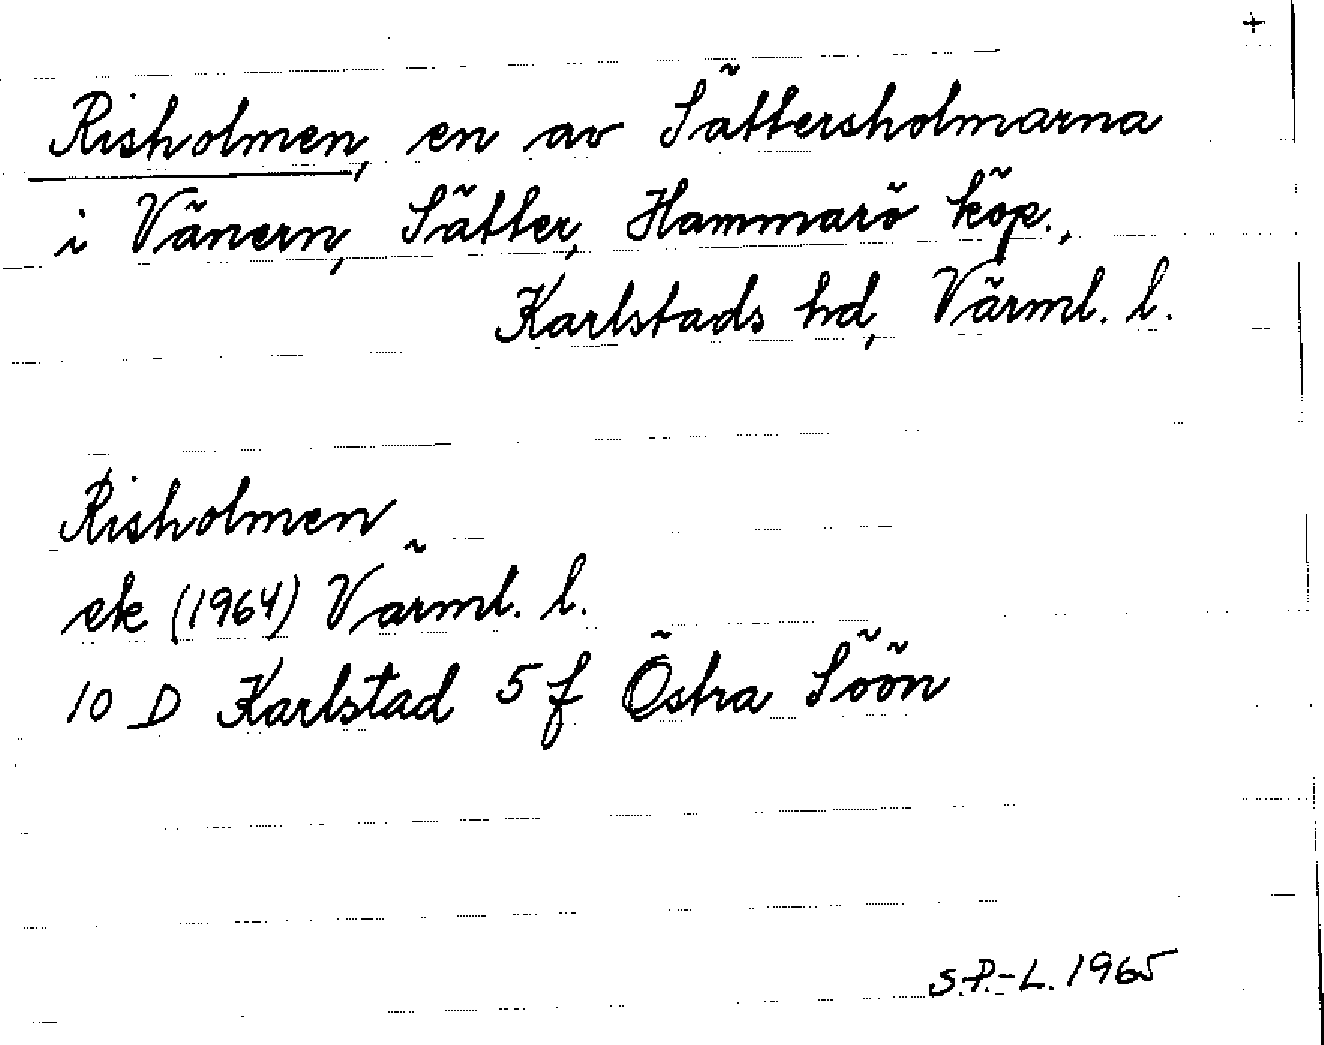 +
Risholmen, en av Sättersholmarna
i Vänern, Sätter, Hammarö köp.,
Karlstads hd, Värml. l.
Risholmen
ek (1964) Värml. l.
10 D Karlstad 5 f Östra Söön
S.P.-L. 1965